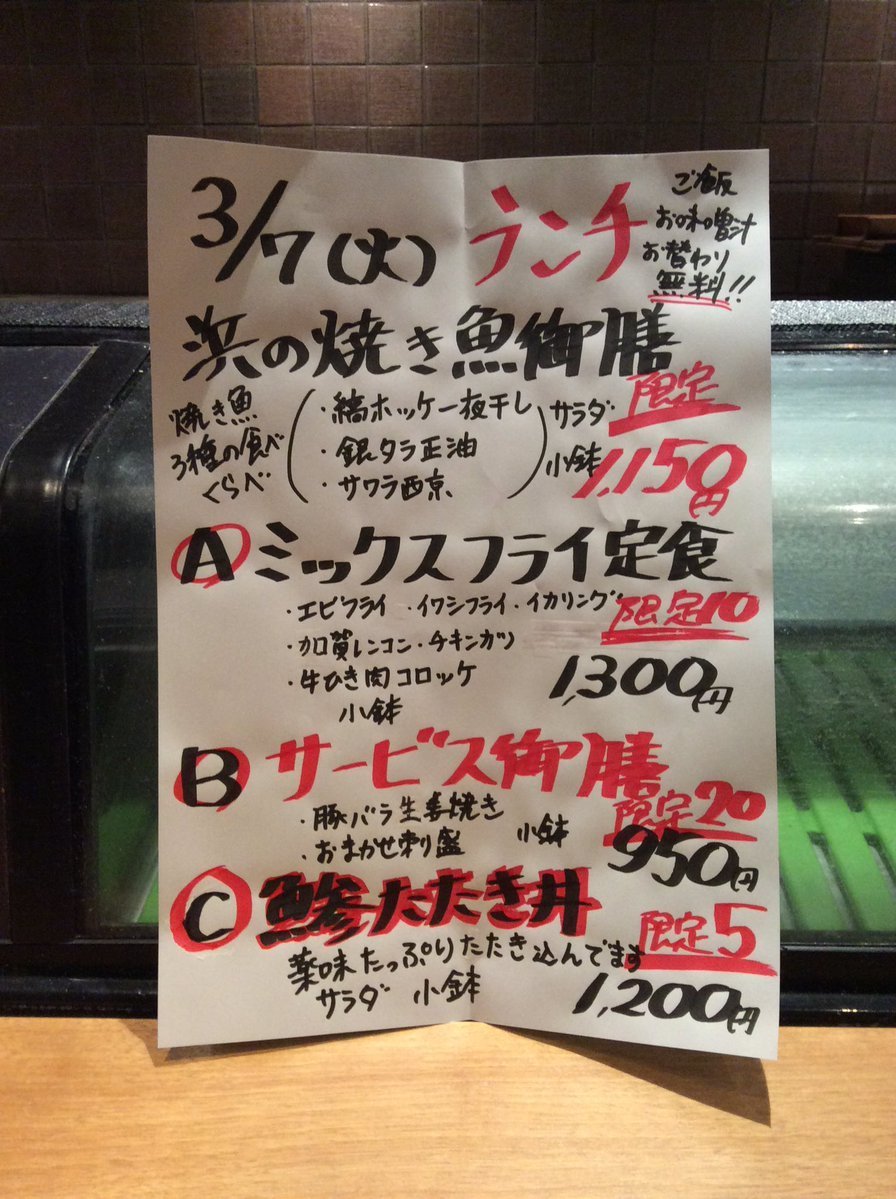 3/7(火) ランチ
ご飯
お味噌汁
お替わり
無料!!
浜の焼き魚御膳
限定
焼き魚
3種の食べ
くらべ
・縞ホッケ一夜干し
・銀タラ正油
・サワラ西京
サラダ
小鉢
1,150円
A ミックスフライ定食
・エビフライ ・イワシフライ ・イカリング
限定10
・加賀レンコン ・チキンカツ
・牛ひき肉コロッケ
小鉢
1,300円
B サービス御膳
限定20
・豚バラ生姜焼き
・おまかせ刺り盛
小鉢
950円
C 鯵たたき丼
限定5
薬味たっぷりたたき込んでます
サラダ 小鉢
1,200円